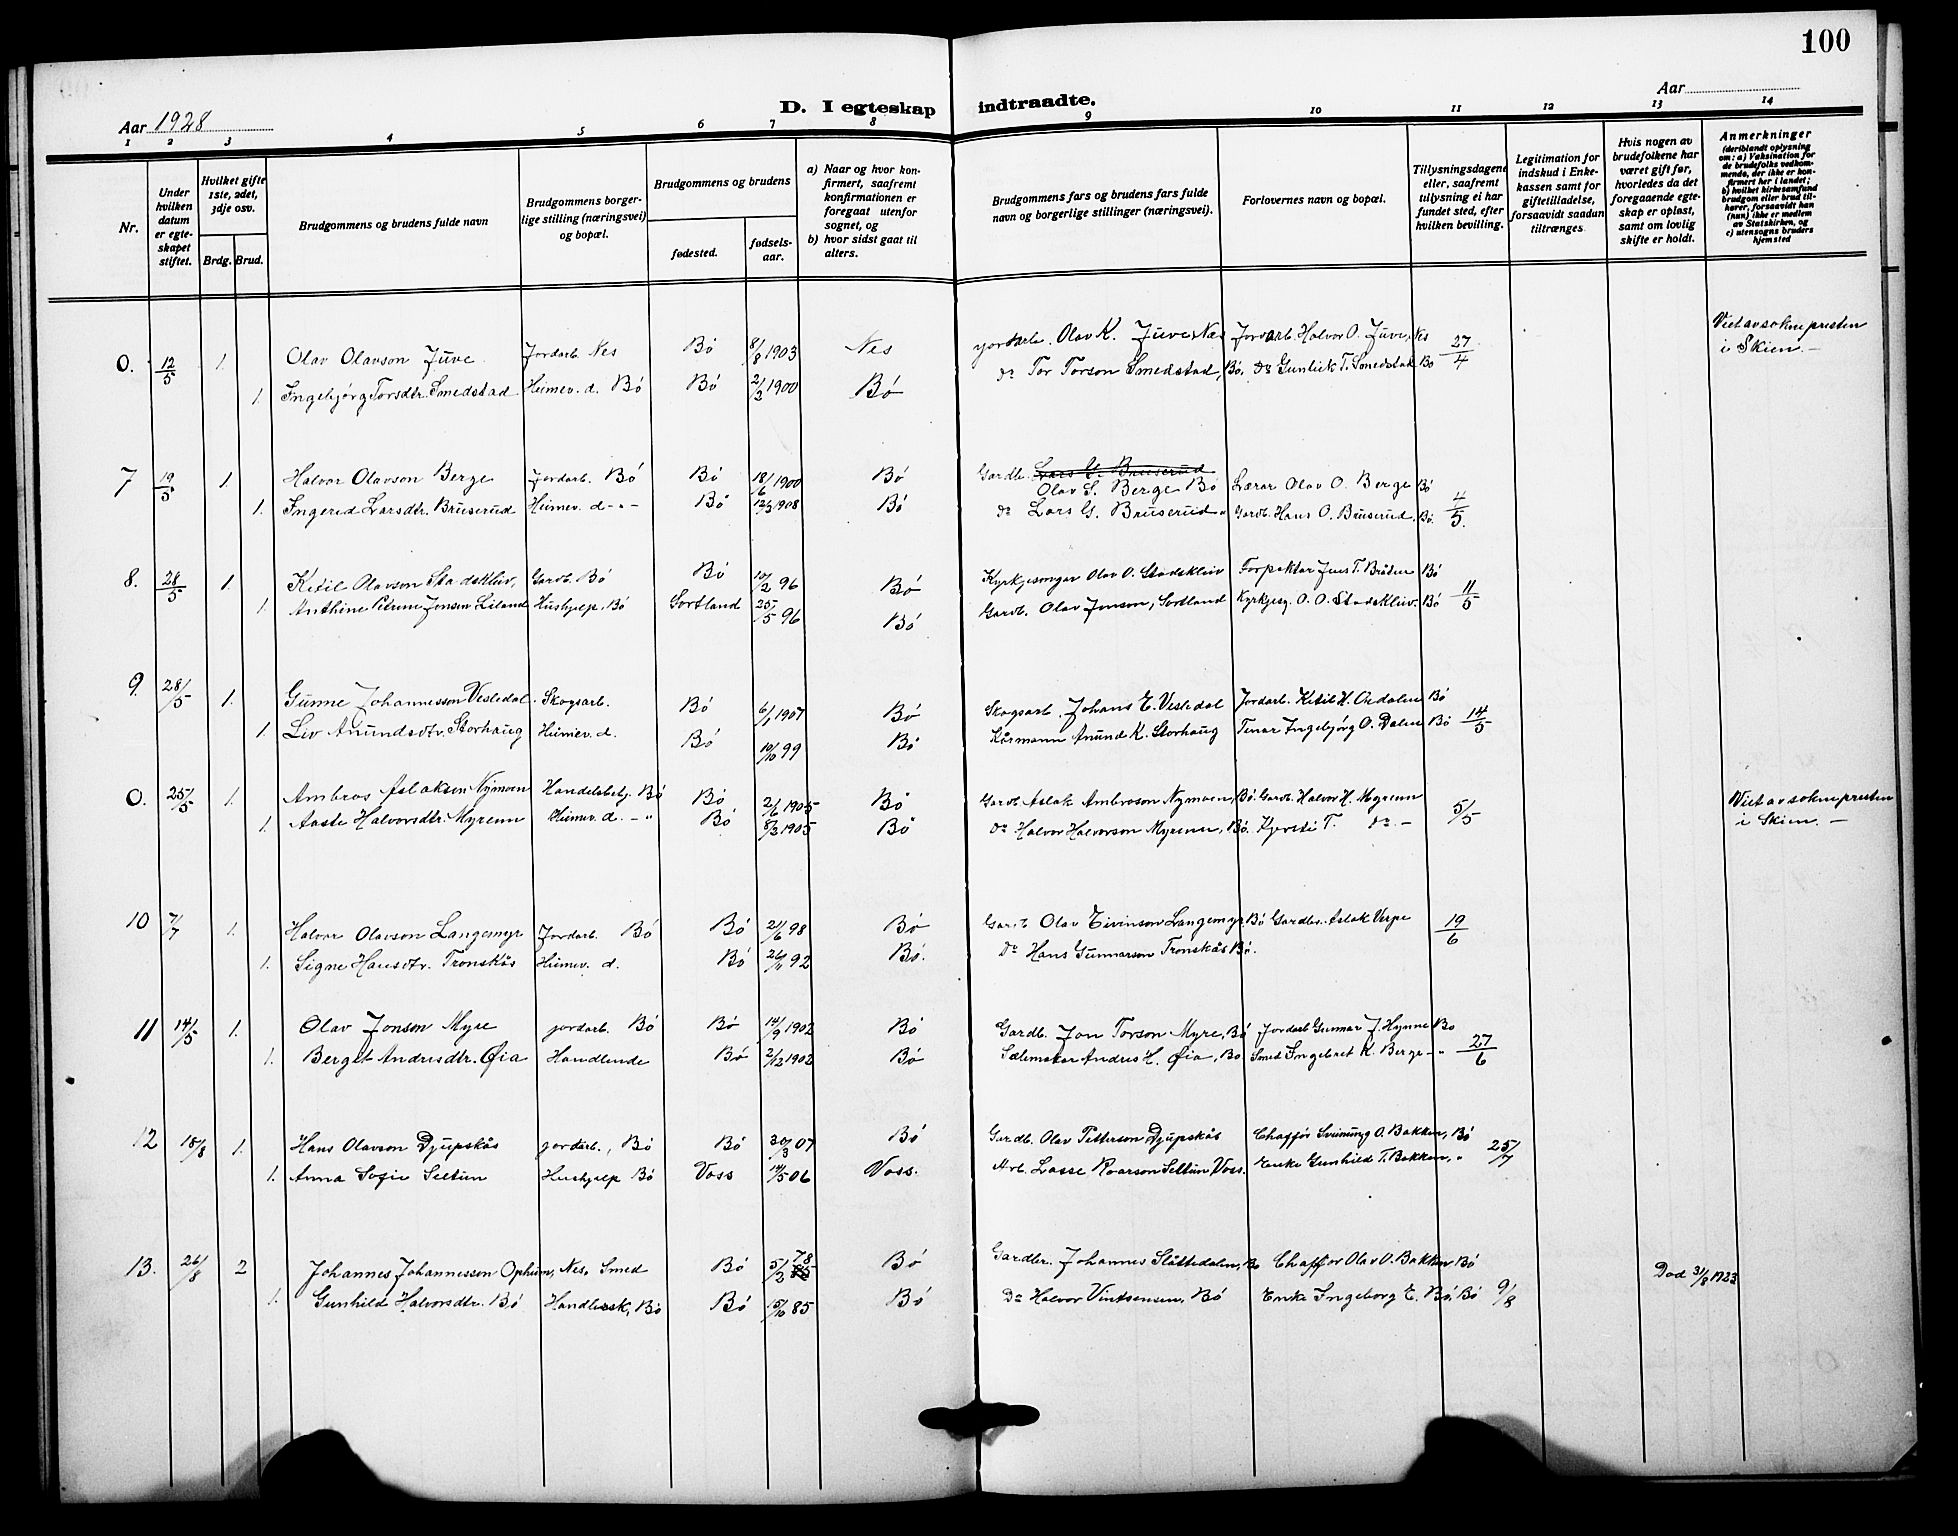 100
Aar 1928
D. I egteskap indtraadte.
Aar
1 2 3 4 5 6 7 8 9 10 11 12 13 14
Nr.
Under hvilken datum er egteskapet stiftet.
Hvilket gifte 1ste, 2det, 3dje osv.
Brdg. Brud.
Brudgommens og brudens fulde navn
Brudgommens borgerlige stilling (næringsvei) og bopæl.
Brudgommens og brudens
fødested.
fødselsaar.
a) Naar og hvor konfirmert, saafremt konfirmationen er foregaat utenfor sognet, og
b) hvor sidst gaat til alters.
Brudgommens fars og brudens fars fulde navn og borgerlige stillinger (næringsvei).
Forlovernes navn og bopæl.
Tillysningsdagene eller, saafremt tillysning ei har fundet sted, efter hvilken bevilling.
Legitimation for indskud i Enkekassen samt for giftetilladelse, forsaavidt saadan tiltrænges
Hvis nogen av brudefolkene har været gift før, hvorledes da det foregaaende egteskap er opløst, samt om lovlig skifte er holdt.
Anmerkninger (deriblandt oplysning om: a) Vaksination for de brudefolks vedkommende, der ikke er konfirmert her i landet; b) hvilket kirkesamfund brudgom eller brud tilhører, forsaavidt han (hun) ikke er medlem av Statskirken, og c) utensogns bruders hjemsted
0. 12/5 1. Olav Olavson Juve Jordarb. Nes Bø 8/8 1903 Nes Jordarb. Olav K. Juve, Nes Jordarb. Halvor O. Juve, Nes 27/4 Viet av soknepresten i Skien. —
1. Ingebjørg Torsdtr. Smedstad Heimev. d. Bø Bø 2/2 1900 Bø do Tor Torson Smedstad, Bø. do Gunleik T. Smedstad Bø
7 19/5 1. Halvor Olavson Berge Jordarb. Bø Bø 18/6 1900 Bø Gardb. Lars G. Bruserud Olav S. Berge Bø Lærar Olav O. Berge Bø 4/5.
1. Ingerid Larsdtr. Bruserud Heimev. d - " - Bø 12/3 1908 Bø do Lars G. Bruserud " Gardb. Hans O. Bruserud, Bø.
8. 28/5 1. Ketil Olavson Stadskleiv, Gardb. Bø Bø 10/2 96 Bø Kyrkjesongar Olav O. Stadskleiv Forpaktar Jens T. Bråten Bø 11/5
1. Anthine Petrine Jensen Liland Hushjelp, Bø Sortland 25/5 96 Bø Gardb. Olav Jenson, Sortland Kyrkjesg. O. O. Stadskleiv. Bø
9. 28/5 1. Gunne Johannesson Vesledal Skogsarb. Bø 6/1 1907 Bø Skogsarb. Johans E. Vesledal Jordarb. Ketil H. Oredalen Bø 14/5
1. Liv Anundsdtr. Storhaug Heimev. d. Bø 10/10 99 Bø Kårmann Anund K. Storhaug Tenar Ingebjørg O. Dalen Bø
0. 25/5 1. Ambros Aslaksen Nymoen Handelsbetj. Bø Bø 2/6 1905 Bø Gardb. Aslak Ambroson Nymoen, Bø. Gardb. Halvor H. Myrenn 5/5 Viet av soknepresten i Skien. —
1. Aaste Halvorsdtr. Myrenn Heimev. d. - " Bø 8/3 1905 Bø do Halvor Halvorson Myrenn, Bø. Kjersti T. do. -
10 7/7 1. Halvor Olavson Langemyr Jordarb. Bø Bø 21/6 98 Bø Gardb. Olav Eivinson Langemyr, Bø Gardbr. Aslak Verpe 19/6
1. Signe Hansdtr. Tronskås Heimev. d. Bø 26/11 92 Bø. Do Hans Gunnarson Tronskås Bø.
11 14/5 1. Olav Jonson Myre jordarb. Bø Bø 14/9 1902 Bø Gardb. Jon Torson Myre, Bø Jordarb Gunnar J. Hynne Bø 27/6
1. Berget Andrisdtr. Øia Handlende Bø 2/12 1902 Bø Salmakar Andris H. Øia, Bø Smed Ingebret K. Berge - "
12 18/8 1. Hans Olavson Djupskås jordarb., Bø Bø 30/3 07 Bø Gardb. Olav Petterson Djupskås Chafför Sveinung O. Bakken, Bø 25/7
1. Anna Sofie Seltun Hushjelp Bø Voss 14/5 06 Voss. Arb. Lasse Roarson Seltun Voss. Enke Gunhild T. Bakken, "
13. 26/8 2 Johannes Johannessen Ophum, Nes, Smed Bø 5/3 78 Bø Gardbr. Johannes Slåttedalen, Bø Chafför Olav O. Bakken Bø Død 31/8 1923
1. Gunhild Halvorsdtr. Bø Handlersk, Bø Bø 15/10 85 Bø Do Halvor Vintsensen, Bø Enke Ingeborg E. Bø, Bø 9/8